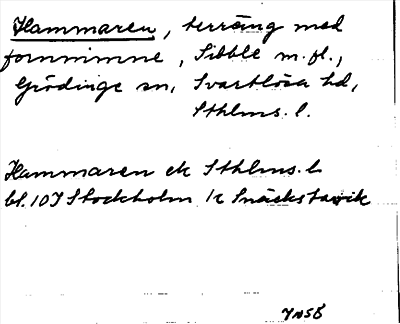 Hammaren, terräng med
fornminne, Sibble m.fl.,
Grödinge sn, Svartlösa hd,
Sthlms. l.
Hammaren ek Sthlms. l.
bl. 10I Stockholm 1c Snäckstavik